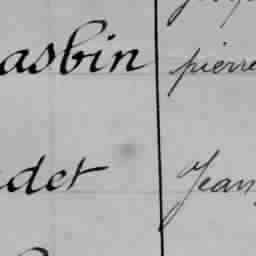 asbin pierre
det Jean